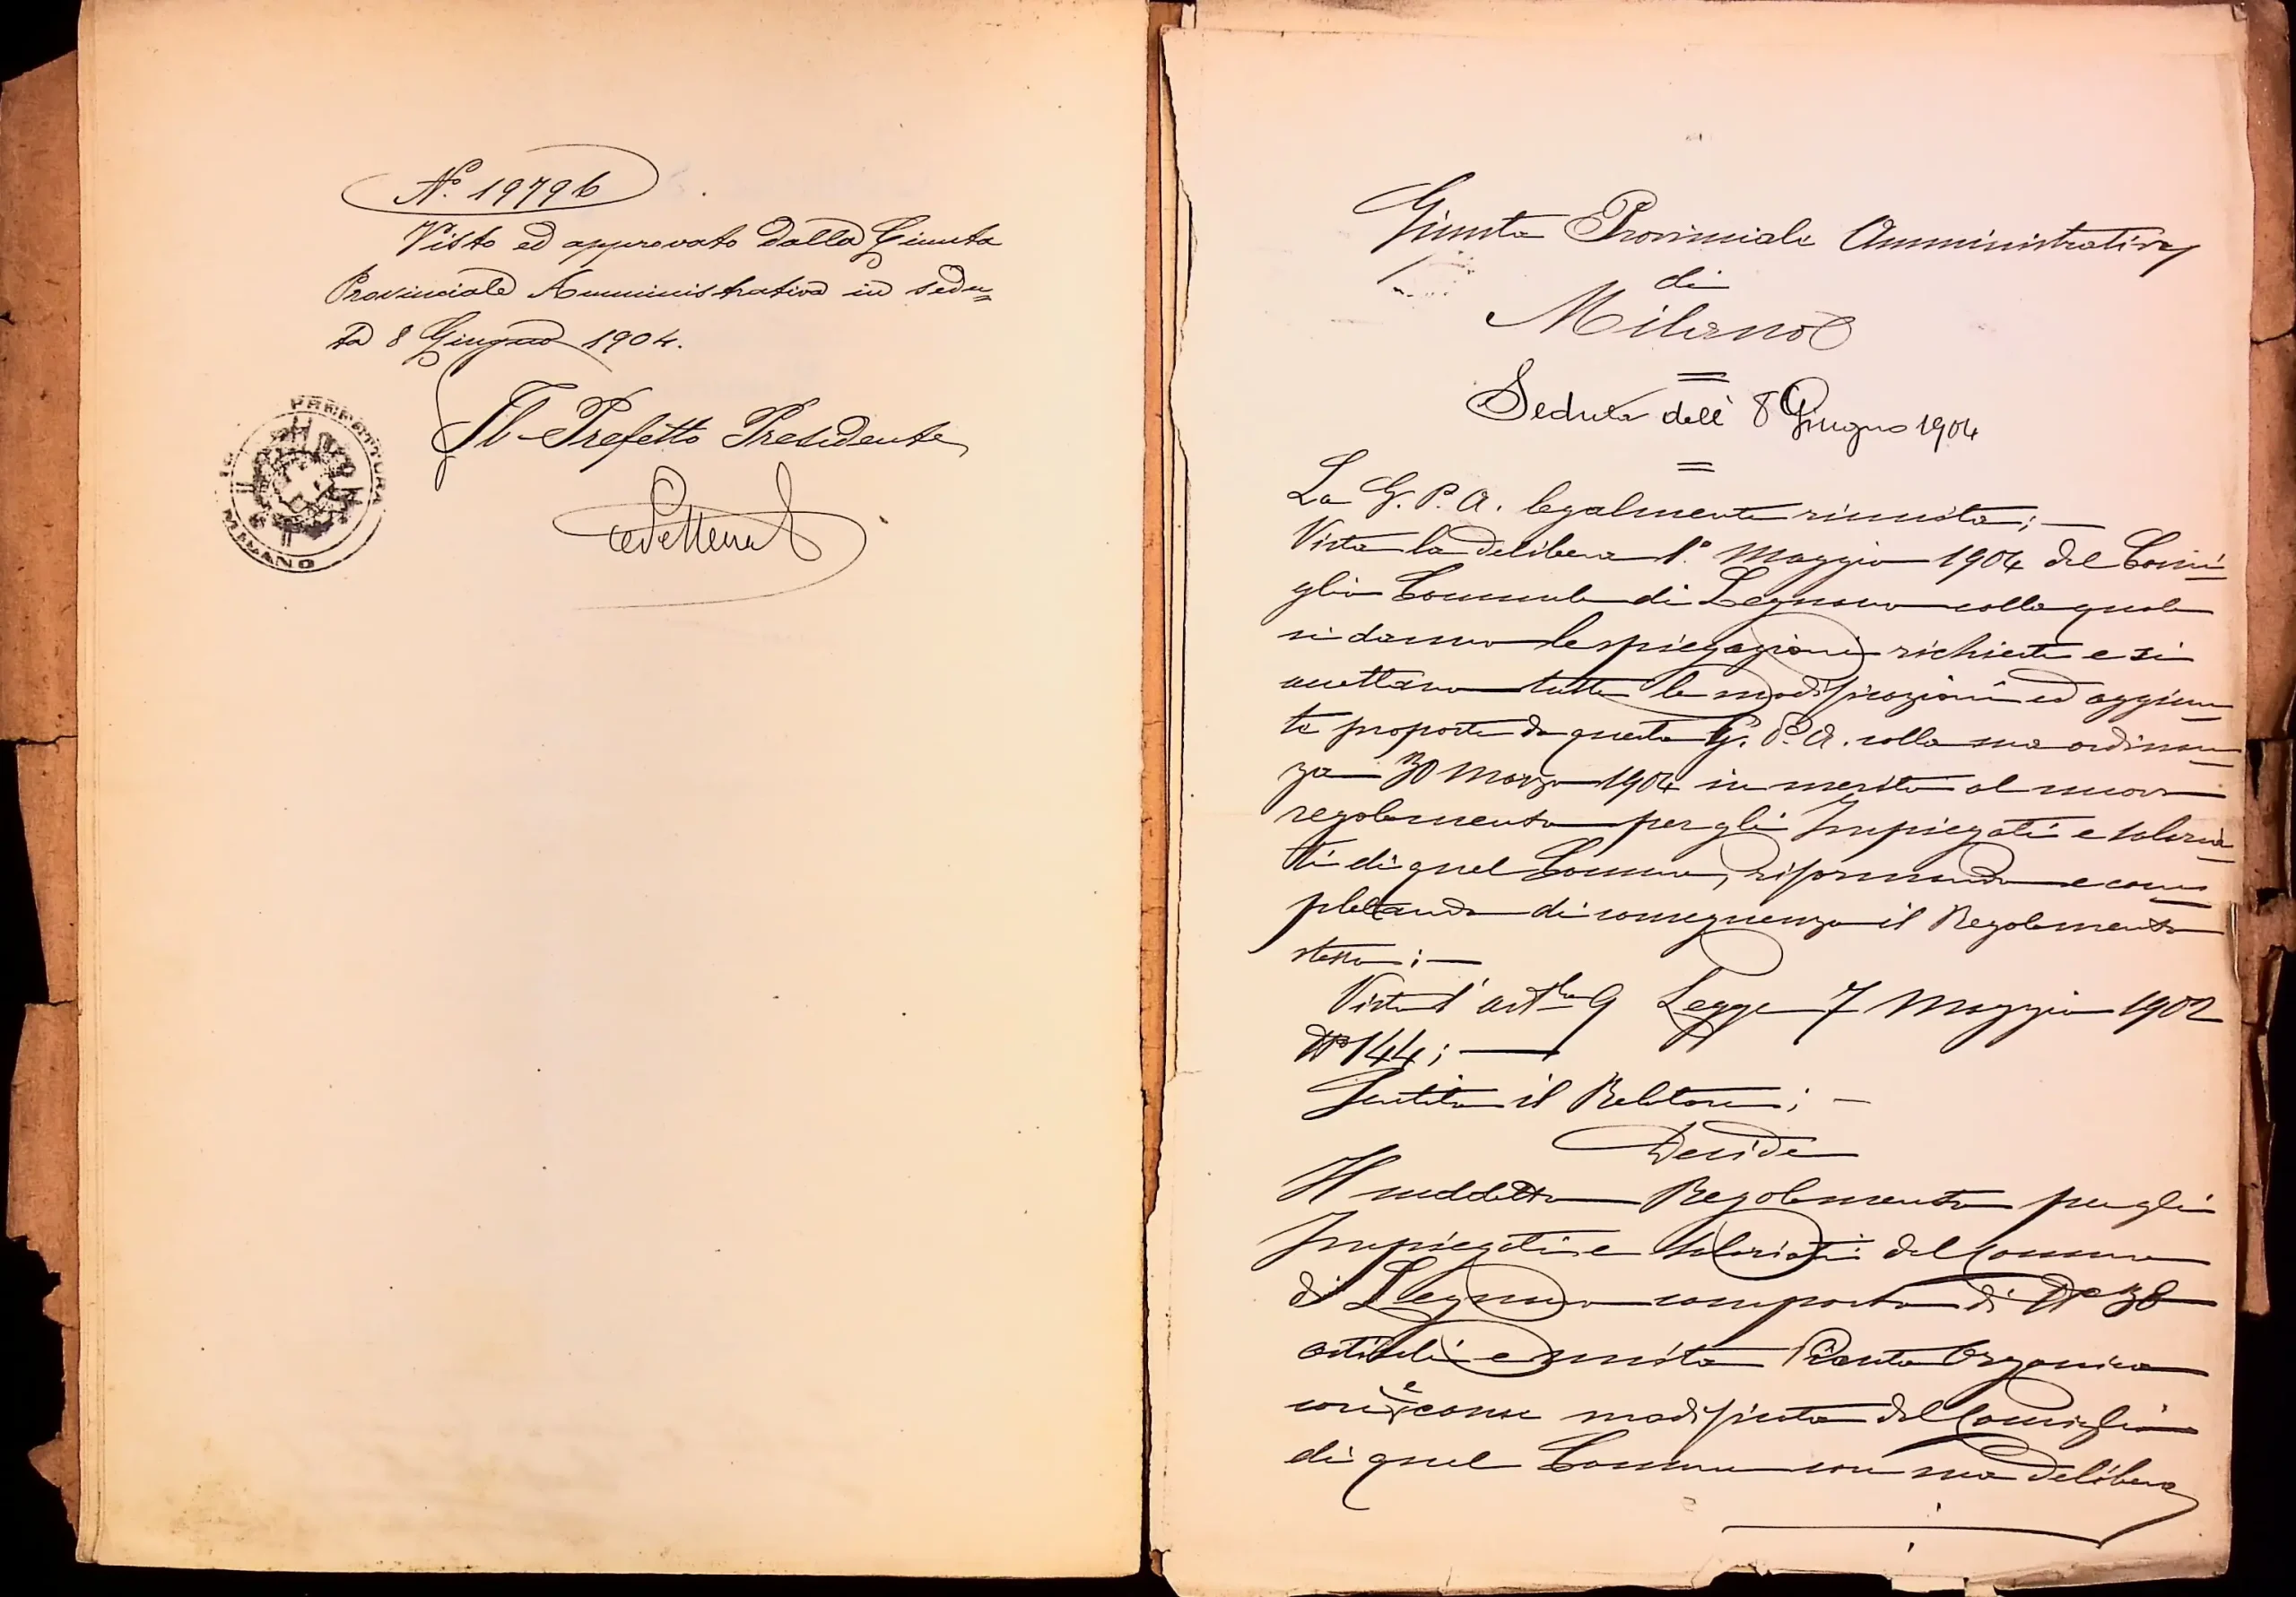 N.° 19796
Visto ed approvato dalla Giunta
Provinciale Amministrativa in sedu=
ta 8 Giugno 1904.
Il Prefetto Presidente
PREFETTURA
MILANO
Giunta Provinciale Amministrativa
di
Milano
=
Seduta dell' 8 Giugno 1904
=
La G. P. A. legalmente riunita; —
Vista la delibera 1° Maggio 1904 del Consi=
glio Comunale di Legnano colla quale
si danno le spiegazioni richieste e si
accettano tutte le modificazioni ed aggiun=
te proposte da questa G. P. A. colla sua ordinan=
za 30 Marzo 1904 in merito al nuovo
regolamento per gli Impiegati e salaria=
ti di quel Comune, riformando e com=
pletando di conseguenza il Regolamento
stesso; —
Visto l'art.lo 9 Legge 7 Maggio 1902
N° 144; —
Sentito il Relatore; —
Decide
Il suddetto Regolamento per gli
Impiegati e salariati del Comune
di Legnano composto di N° 38
articoli e unita Pianta Organica
così e come modificata dal Consiglio
di quel Comune con sua delibera